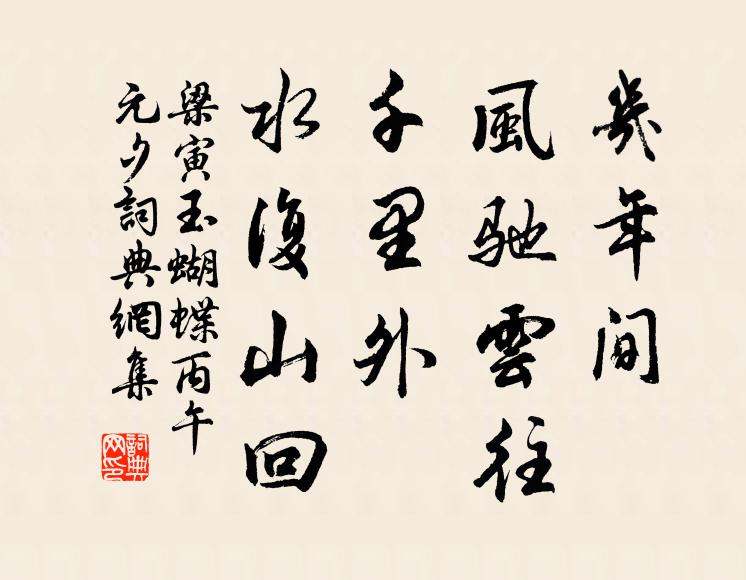 幾年間
風馳雲往
千里外
水復山回
梁寅玉蝴蝶丙午
元夕詞典網集
詞典
网印